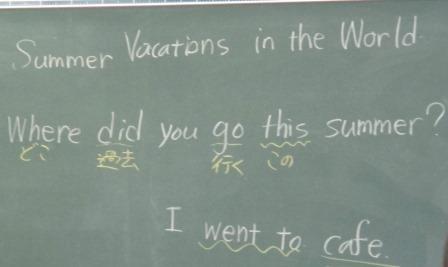 Summer Vacations in the World
Where did you go this summer?
どこ 過去 行く この
I went to cafe.